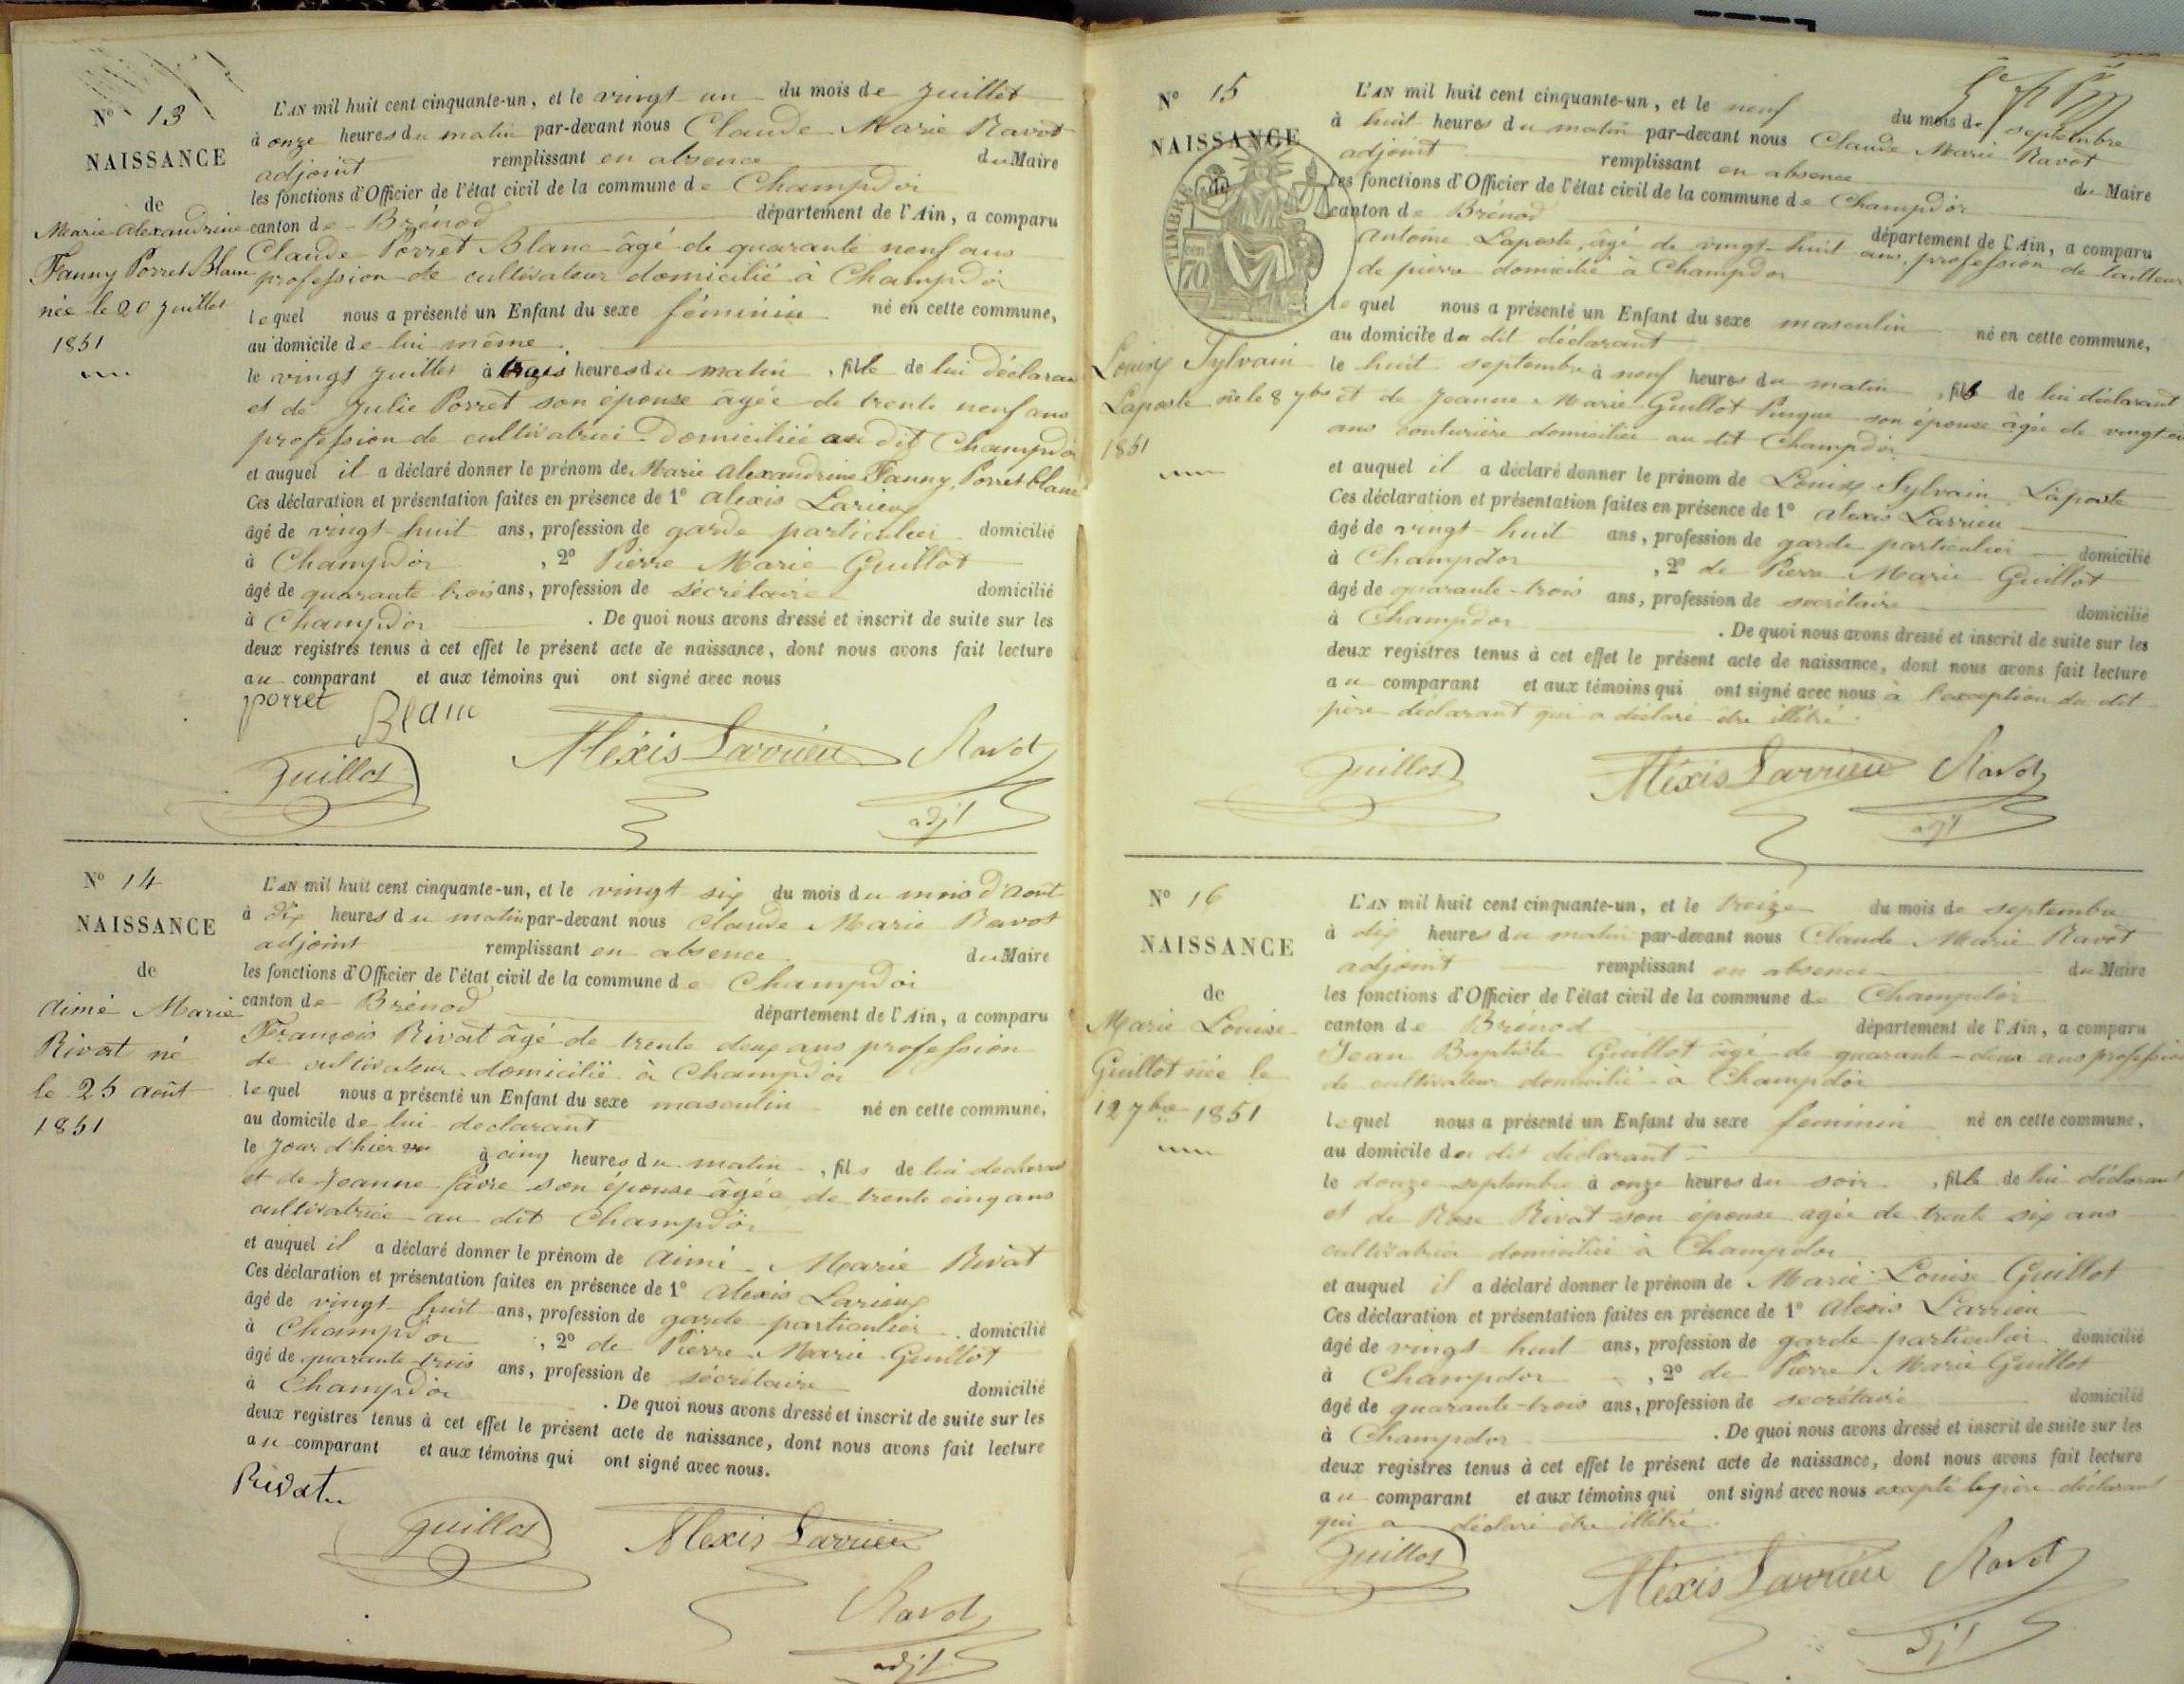 N° 13
NAISSANCE
de
Marie Alexandrine
Fanny Porret Blanc
née le 20 Juillet
1851
L'AN mil huit cent cinquante-un, et le vingt un du mois de Juillet
à onze heures du matin par-devant nous Claude Marie Ravot
adjoint remplissant en absence du Maire
les fonctions d'Officier de l'état civil de la commune de Champdor
canton de Brénod département de l'Ain, a comparu
Claude Porret Blanc âgé de quarante neuf ans
profession de cultivateur domicilié à Champdor
lequel nous a présenté un Enfant du sexe féminin né en cette commune,
au domicile de lui même
le vingt Juillet à trois heures du matin, fille de lui déclarant
et de Julie Porret son épouse âgée de trente neuf ans
profession de cultivatrice domiciliée au dit Champdor
et auquel il a déclaré donner le prénom de Marie Alexandrine Fanny Porret blanc
Ces déclaration et présentation faites en présence de 1° Alexis Larieux
âgé de vingt huit ans, profession de garde particulier domicilié
à Champdor, 2° Pierre Marie Guillot
âgé de quarante trois ans, profession de sécrétaire domicilié
à Champdor. De quoi nous avons dressé et inscrit de suite sur les
deux registres tenus à cet effet le présent acte de naissance, dont nous avons fait lecture
au comparant et aux témoins qui ont signé avec nous
porret Blanc
Guillot Alexis Larrieu Ravot
adjt
N° 14
NAISSANCE
de
Aimé Marie
Rivat né
le 25 Août
1851
L'AN mil huit cent cinquante-un, et le vingt six du mois du mois d'Aout
à dix heures du matin par-devant nous Claude Marie Ravot
adjoint remplissant en absence du Maire
les fonctions d'Officier de l'état civil de la commune de Champdor
canton de Brénod département de l'Ain, a comparu
François Rivat âgé de trente deux ans profession
de cultivateur domicilié à Champdor
lequel nous a présenté un Enfant du sexe masculin né en cette commune,
au domicile de lui declarant
le Jour d'hier à cinq heures du matin, fils de lui declarant
et de Jeanne favre son épouse âgée de trente cinq ans
cultivatrice au dit Champdor
et auquel il a déclaré donner le prénom de Aimé Marie Rivat
Ces déclaration et présentation faites en présence de 1° Alexis Larieux
âgé de vingt huit ans, profession de garde particulier domicilié
à Champdor, 2° de Pierre Marie Guillot
âgé de quarante trois ans, profession de sécrétaire domicilié
à Champdor. De quoi nous avons dressé et inscrit de suite sur les
deux registres tenus à cet effet le présent acte de naissance, dont nous avons fait lecture
au comparant et aux témoins qui ont signé avec nous.
Rivat
Guillot Alexis Larrieu
Ravot
adjt
N° 15
NAISSANCE
de
TIMBRE
70
Louis Sylvain
Laposte né le 8 7bre
1851
L'AN mil huit cent cinquante-un, et le neuf du mois de septembre
à huit heures du matin par-devant nous Claude Marie Ravot
adjoint remplissant en absence du Maire
les fonctions d'Officier de l'état civil de la commune de Champdor
canton de Brénod département de l'Ain, a comparu
Antoine Laposte, âgé de vingt-huit ans, profession de tailleur
de pierre domicilié à Champdor
lequel nous a présenté un Enfant du sexe masculin né en cette commune,
au domicile du dit déclarant
le huit septembre à neuf heures du matin, fils de lui déclarant
et de Jeanne Marie Guillot son épouse âgée de vingt
ans couturière domiciliée au dit Champdor
et auquel il a déclaré donner le prénom de Louis Sylvain Laposte
Ces déclaration et présentation faites en présence de 1° Alexis Larrieu
âgé de vingt-huit ans, profession de garde particulier domicilié
à Champdor, 2° de Pierre Marie Guillot
âgé de quarante-trois ans, profession de secrétaire domicilié
à Champdor. De quoi nous avons dressé et inscrit de suite sur les
deux registres tenus à cet effet le présent acte de naissance, dont nous avons fait lecture
au comparant et aux témoins qui ont signé avec nous à l'exception du dit
père déclarant qui a déclaré être illétré.
Guillot Alexis Larrieu Ravot
adjt
N° 16
NAISSANCE
de
Marie Louise
Guillot née le
12 7bre 1851
L'AN mil huit cent cinquante-un, et le treize du mois de septembre
à dix heures du matin par-devant nous Claude Marie Ravot
adjoint remplissant en absence du Maire
les fonctions d'Officier de l'état civil de la commune de Champdor
canton de Brénod département de l'Ain, a comparu
Jean Baptiste Guillot âgé de quarante-deux ans profession
de cultivateur domicilié à Champdor
lequel nous a présenté un Enfant du sexe feminin né en cette commune,
au domicile du dit déclarant
le douze septembre à onze heures du soir, fille de lui déclarant
et de Rose Rivat son épouse agée de trente six ans
cultivatrice domiciliée à Champdor
et auquel il a déclaré donner le prénom de Marie Louise Guillot
Ces déclaration et présentation faites en présence de 1° Alexis Larrieu
âgé de vingt huit ans, profession de garde particulier domicilié
à Champdor, 2° de Pierre Marie Guillot
âgé de quarante-trois ans, profession de secrétaire domicilié
à Champdor. De quoi nous avons dressé et inscrit de suite sur les
deux registres tenus à cet effet le présent acte de naissance, dont nous avons fait lecture
au comparant et aux témoins qui ont signé avec nous excepté le père déclarant
qui a déclaré être illétré.
Guillot Alexis Larrieu Ravot
adjt